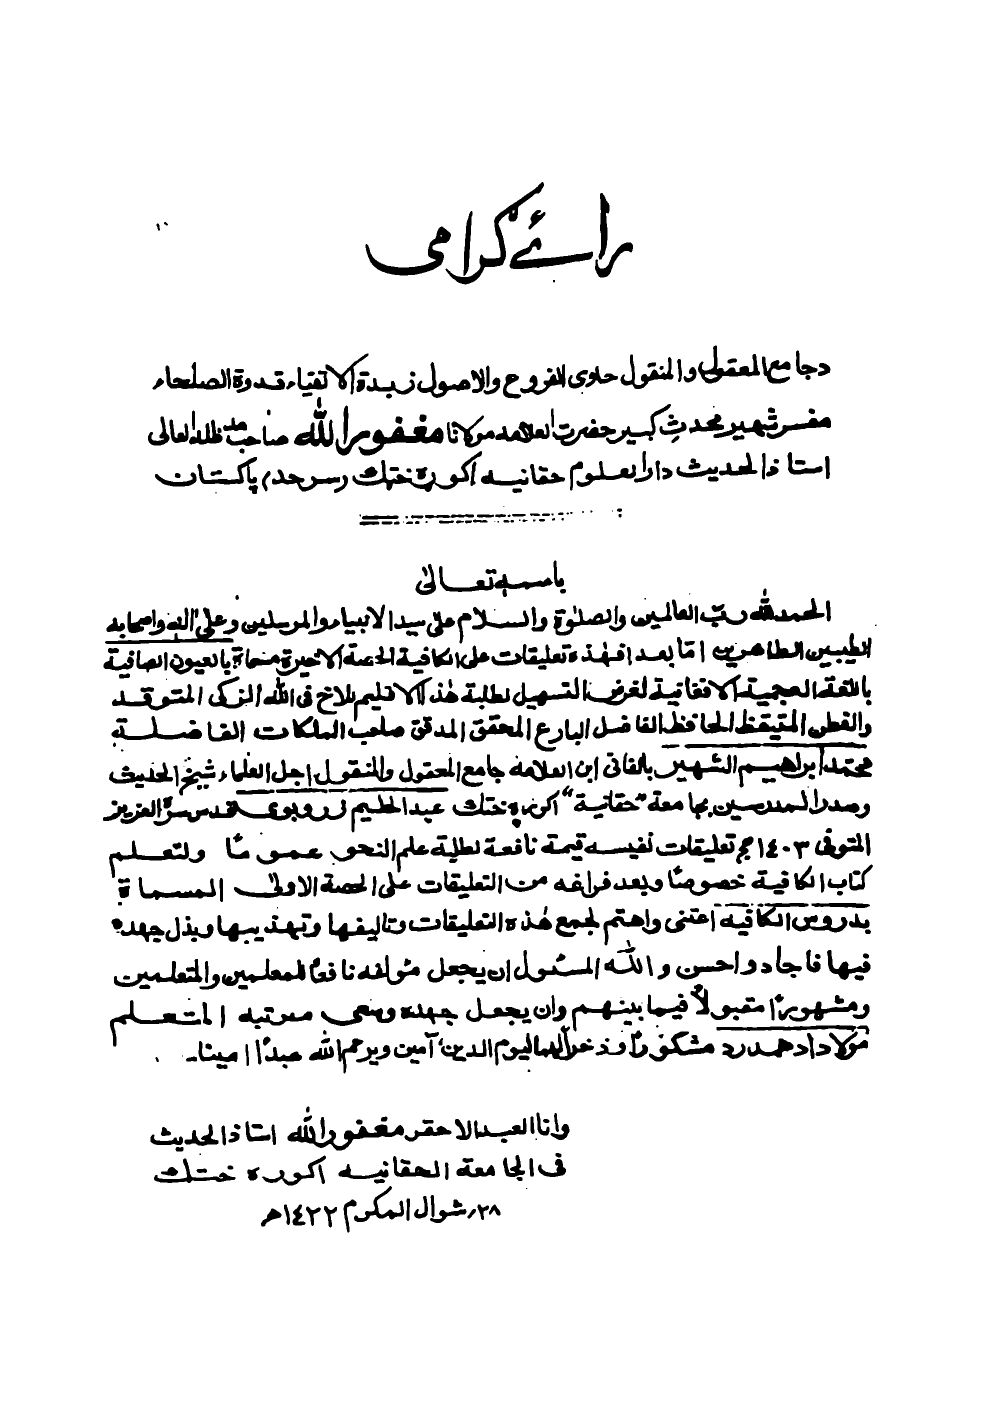 رائے گرامی
دجامع المعقول والمنقول حاوی الفروع والاصول زبدة الاتقیاء قدوة الصلحاء
مفسر شهیر محدثِ کبیر حضرت العلامه مولانا مغفور الله صاحب مد ظله العالی
استاذ الحدیث دار العلوم حقانیه اکوړه خټک (سرحد) پاکستان
باسمه تعالیٰ
الحمد لله ربّ العالمین والصلوٰة والسلام علی سید الانبیاء والمرسلین وعلیٰ آله واصحابه
الطیبین الطاهرین امّا بعد افهٰذه تعلیقات علی الکافیة الحصة الاخیرة مسماة بالعیون الصافیة
باللغة العجمیة الافغانیة لغرض التسهیل لطلبة هٰذه الاقلیم بلاخ فی الله الزکی المتوقد
والفطن المتیقظ الحافظ الفاضل البارع المحقق المدقق صاحب الملکات الفاضلة
محمد ابراهیم الشهیر بالفانی ابن العلامة جامع المعقول والمنقول اجل العلماء شیخ الحدیث
وصدر المدرسین بجامعة "حقانیة" اکوړه خټک عبد الحلیم زروبوی قدس سرّه العزیز
المتوفیٰ ۱٤۰۳ھ تعلیقات نفیسه قیمة نافعة لطلبة علم النحو عمومًا ولتعلم
کتاب الکافیة خصوصًا وبعد فراغه من التعلیقات علی الحصة الاولیٰ المسماة
بدروس الکافیه اعتنی واهتم لجمع هٰذه التعلیقات وتالیفها وتهذیبها وبذل جهده
فیها فاجاد واحسن والله المسئول ان یجعل مؤلفه نافعًا للمعلمین والمتعلمین
ومشهورًا مقبولاً فیما بینهم وان یجعل جهده وسعی مرتبه المتعلم
مولاداد همدرد مشکورًا وذخرًا لهما لیوم الدین، آمین ویرحم الله عبدًا امینا۔
وانا العبد الاحقر مغفور الله استاذ الحدیث
فی الجامعة الحقانیه اکوړه خټک
۲۸؍ شوال المکرم ۱٤۲۲ھ